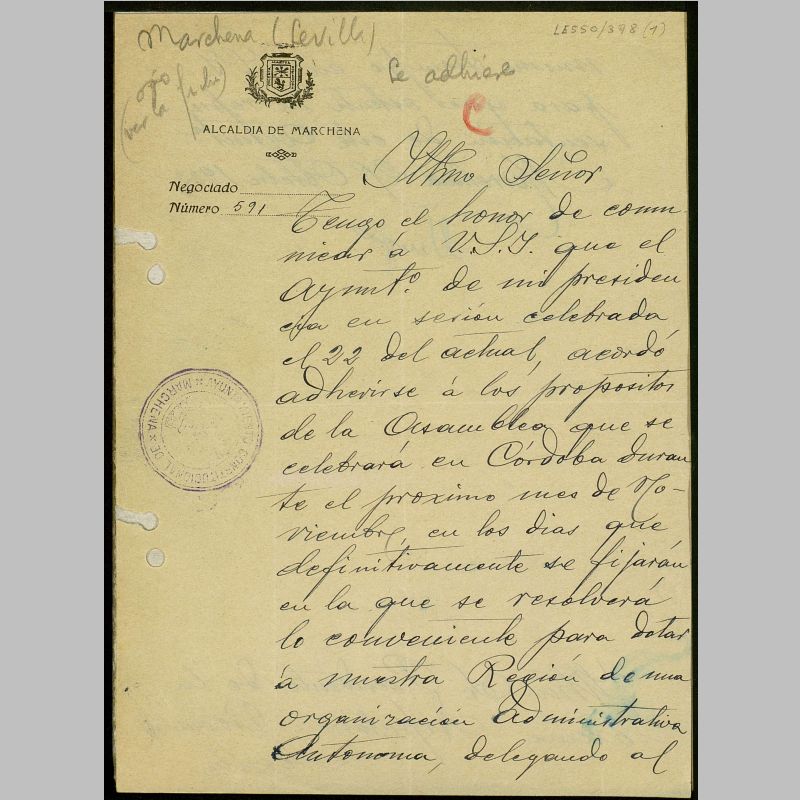 LE550/398 (1)
Marchena (Sevilla)
Se adhiere
ojo
(ver la ficha)
C
ALCALDIA DE MARCHENA
Negociado
Número 591
Iltmo Señor
Tengo el honor de comu-
nicar á V.S.I. que el
Ayuntº. de mi presiden
cia en sesión celebrada
el 22 del actual, acordó
adherirse á los propositos
de la Asamblea que se
celebrará en Córdoba duran
te el proximo mes de No-
viembre, en los dias que
definitivamente se fijarán
en la que se resolverá
lo conveniente para dotar
á nuestra Región de una
organización administrativa
Autonoma, delegando al
CONSTITUCIONAL DE MARCHENA